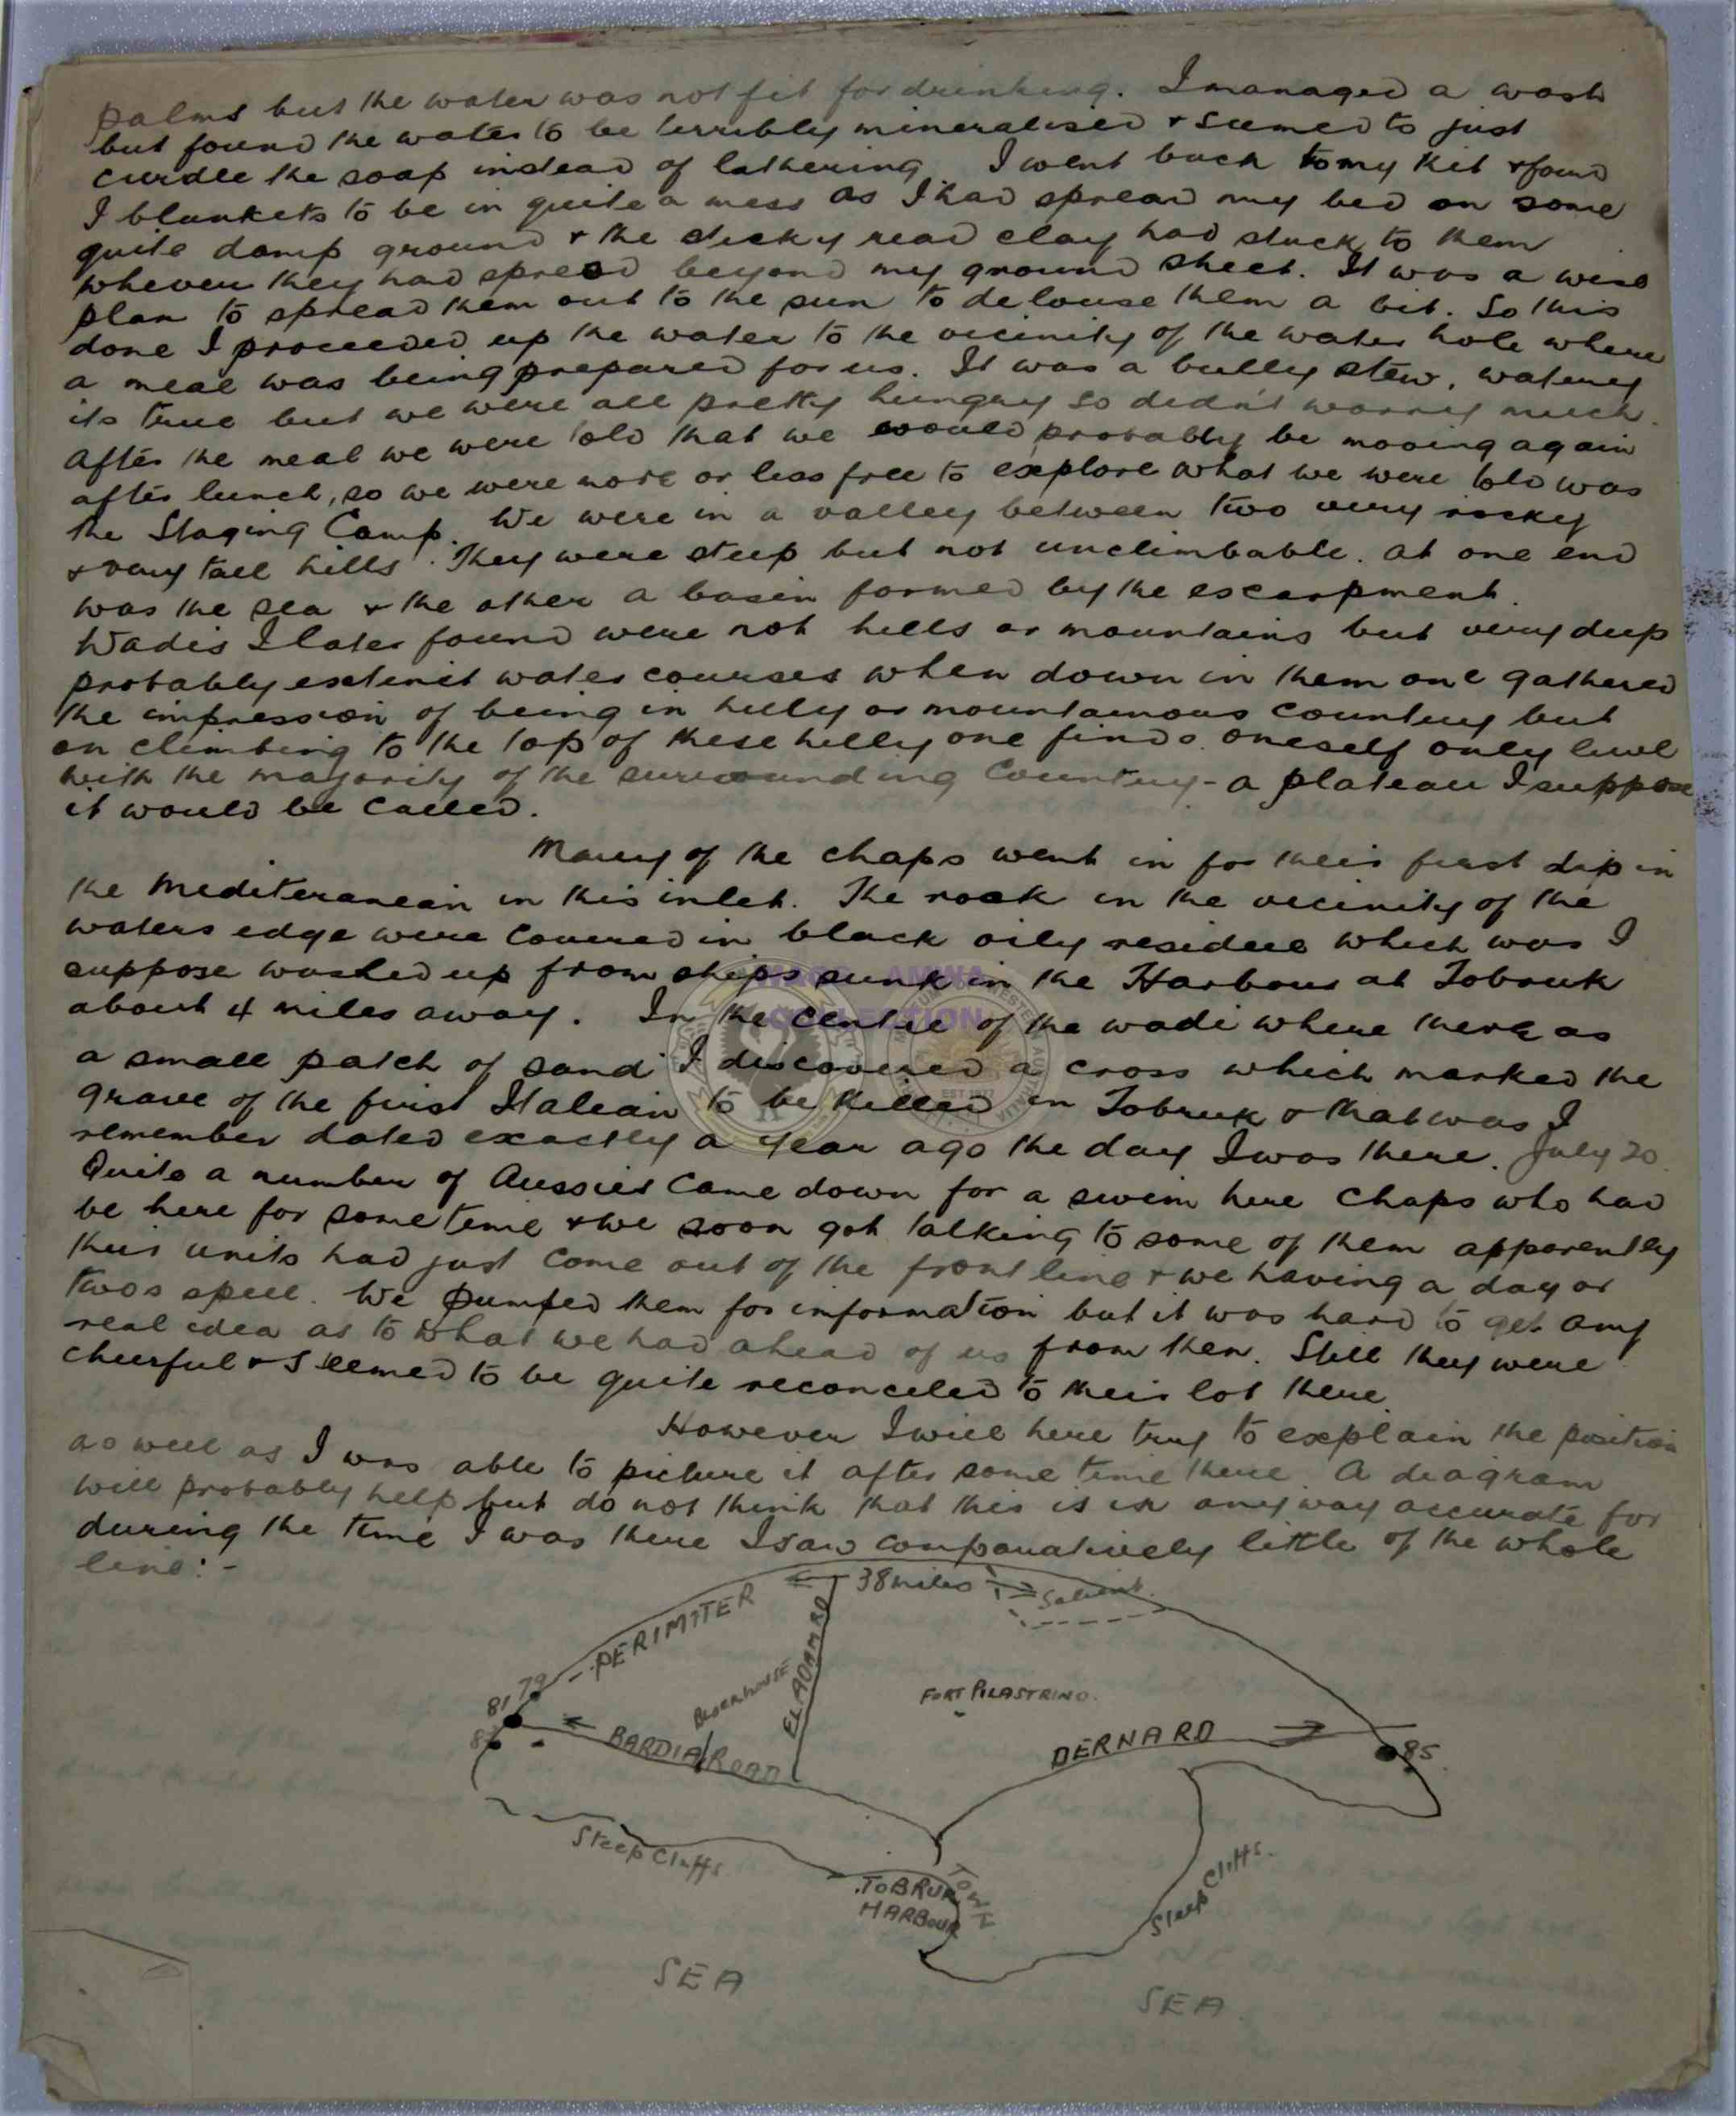 palms but the water was not fit for drinking. I managed a wash
but found the water to be terribly mineralised & seemed to just
curdle the soap instead of lathering. I went back to my kit & found
I blankets to be in quite a mess as I had spread my bed on some
quite damp ground & the sticky read clay had stuck to them
whereever they had spread beyond my ground sheet. It was a wise
plan to spread them out to the sun to delouse them a bit. So this
done I proceeded up the water to the vicinity of the water hole where
a meal was being prepared for us. It was a bully stew, watery
its true but we were all pretty hungry so didn't worry much.
After the meal we were told that we would probably be mooving again
after lunch, so we were more or less free to explore what we were told was
the Staging Camp. We were in a valley between two very rocky
& very tall hills. They were steep but not unclimbable. At one end
was the sea & the other a basin formed by the escarpment.
Wadis I later found were not hills or mountains but very deep
probably extinct water courses when down in them one gathered
the impression of being in hilly or mountainous country but
on climbing to the top of these hilly one finds oneself only level
with the majority of the surrounding country - a plateau I suppose
it would be called.
Many of the chaps went in for their first dip in
the Mediteranean in this inlet. The rock in the vicinity of the
waters edge were covered in black oily residue which was I
suppose washed up from ships sunk in the Harbour at Tobruk
about 4 miles away. In the centre of the wadi where there as
a small patch of sand I discovered a cross which marked the
grave of the first Italian to be killed in Tobruk & that was I
remember dated exactly a year ago the day I was there. July 20
Quite a number of Aussies came down for a swim here chaps who had
be here for some time & we soon got talking to some of them apparently
their units had just come out of the front line & we having a day or
twos spell. We pumped them for information but it was hard to get any
real idea as to what we had ahead of us from then. Still they were
cheerful & seemed to be quite reconciled to their lot there.
However I will here try to explain the position
as well as I was able to picture it after some time there. A diagram
will probably help but do not think that this is in anyway accurate for
during the time I was there I saw comparatively little of the whole
line:-
38 miles
Salient
PERIMITER
EL ADAM RD
79
81
FORT PILASTRINO.
BARDIA ROAD
DERNARD
85
Steep Cliffs
TOBRUK
HARBOUR
TOWN
Steep Cliffs.
SEA
SEA
COLLECTION
EST